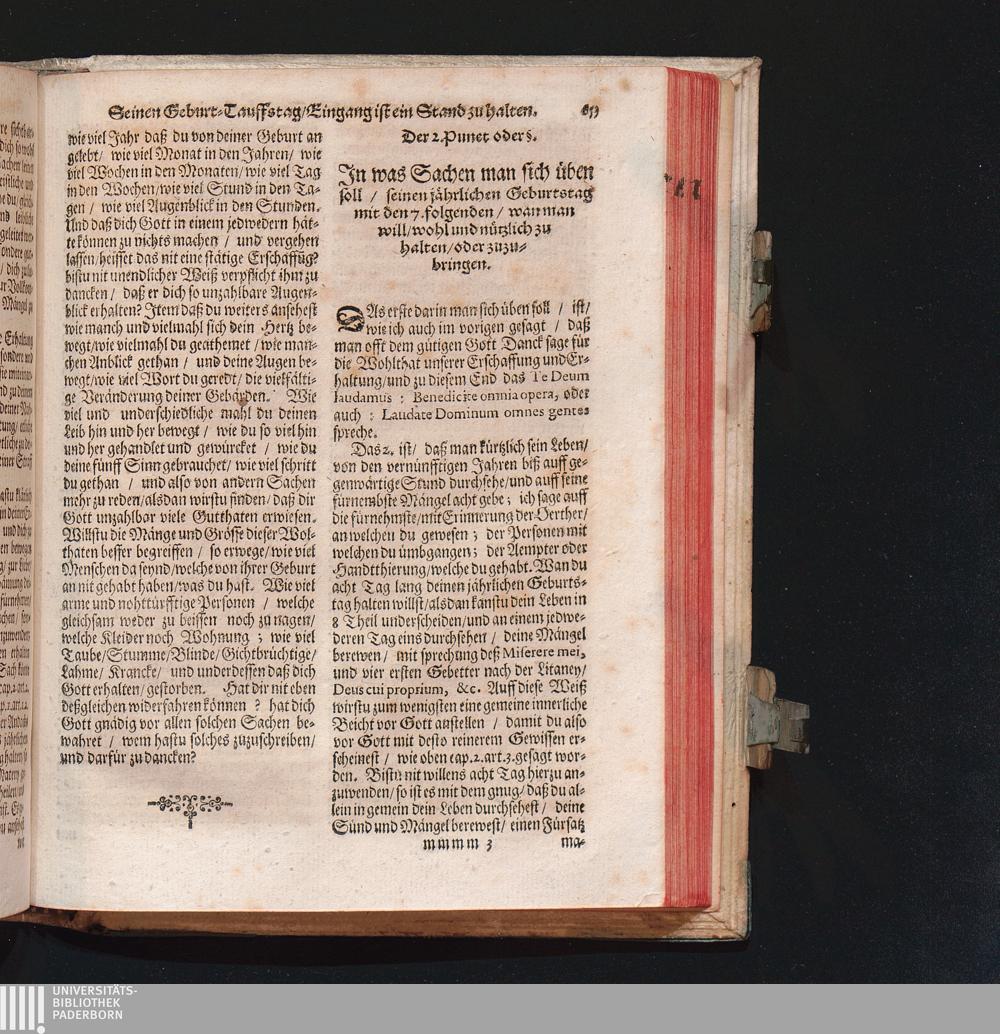 Seinen Geburt-Tauffstag/Eingang ist ein Stand zu halten.
wie viel Jahr daß du von deiner Geburt an
gelebt/ wie viel Monat in den Jahren/ wie
viel Wochen in den Monaten/wie viel Tag
in den Wochen/wie viel Stund in den Ta-
gen / wie viel Augenblick in den Stunden.
Und daß dich Gott in einem jedwedern hät-
te können zu nichts machen / und vergehen
lassen/heisset das nit eine stätige Erschaffüg?
bistu nit unendlicher Weiß verpflicht ihm zu
dancken/ daß er dich so unzahlbare Augen-
blick erhalten? Item daß du weiters ansehest
wie manch und vielmahl sich dein Hertz be-
wegt/wie vielmahl du geathemet/ wie man-
chen Anblick gethan / und deine Augen be-
wegt/wie viel Wort du geredt/ die vielfälti-
ge Veränderung deiner Gebärden. Wie
viel und underschiedliche mahl du deinen
Leib hin und her bewegt / wie du so viel hin
und her gehandlet und gewürcket / wie du
deine fünff Sinn gebrauchet/ wie viel schritt
du gethan / und also von andern Sachen
mehr zu reden/alsdan wirstu finden/daß dir
Gott unzahlbar viele Gutthaten erwiesen.
Willstu die Mänge und Grösse dieser Wol-
thaten besser begreiffen / so erwege/wie viel
Menschen da seynd/welche von ihrer Geburt
an nit gehabt haben/was du hast. Wie viel
arme und nohttürfftige Personen / welche
gleichsam weder zu beissen noch zu nagen/
welche Kleider noch Wohnung ; wie viel
Taube/Stumme/Blinde/Gichtbrüchtige/
Lahme/ Krancke/ und underdessen daß dich
Gott erhalten/gestorben. Hat dir nit eben
deßgleichen widerfahren können ? hat dich
Gott gnädig vor allen solchen Sachen be-
wahret / wem hastu solches zuzuschreiben/
und darfür zu dancken?
Der 2. Punct oder §.
In was Sachen man sich üben
soll / seinen jährlichen Geburtstag
mit den 7. folgenden / wan man
will/wohl und nützlich zu
halten/oder zuzu-
bringen.
DAs erste darin man sich üben soll / ist/
wie ich auch im vorigen gesagt / daß
man offt dem gütigen Gott Danck sage für
die Wohlthat unserer Erschaffung und Er-
haltung/und zu diesem End das Te Deum
laudamus : Benedicite omnia opera, oder
auch : Laudate Dominum omnes gentes
spreche.
Das 2. ist/ daß man kürtzlich sein Leben/
von den vernünfftigen Jahren biß auff ge-
genwärtige Stund durchsehe/und auff seine
fürnembste Mängel acht gebe; ich sage auff
die fürnehmste/mit Erinnerung der Oerther/
an welchen du gewesen ; der Personen mit
welchen du ümbgangen; der Aempter oder
Handtthierung/welche du gehabt. Wan du
acht Tag lang deinen jährlichen Geburts-
tag halten willst/alsdan kanstu dein Leben in
8 Theil underscheiden/und an einem jedwe-
deren Tag eins durchsehen/ deine Mängel
berewen/ mit sprechung deß Miserere mei,
und vier ersten Gebetter nach der Litaney/
Deus cui proprium, &c. Auff diese Weiß
wirstu zum wenigsten eine gemeine innerliche
Beicht vor Gott anstellen / damit du also
vor Gott mit desto reinerem Gewissen er-
scheinest / wie oben cap.2.art.3.gesagt wor-
den. Bistu nit willens acht Tag hierzu an-
zuwenden/so ist es mit dem gnug/daß du al-
lein in gemein dein Leben durchsehest/ deine
Sünd und Mängel berewest/ einen Fürsatz
mmmm 3 ma-
UNIVERSITÄTS-
BIBLIOTHEK
PADERBORN